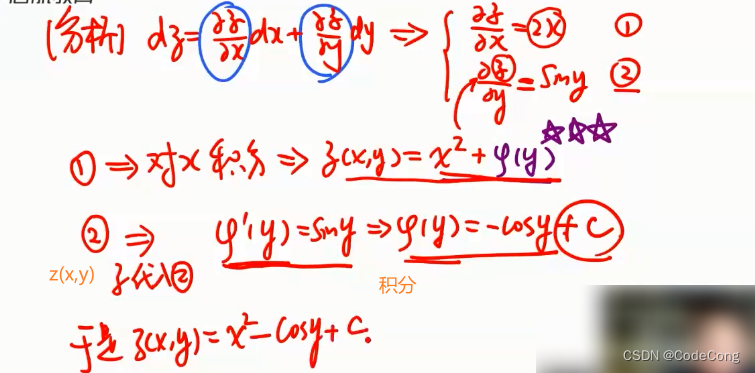 [分析] dz = ∂z/∂x dx + ∂z/∂y dy ⇒ { ∂z/∂x = 2x ①
∂z/∂y = siny ②
① ⇒ 对x积分 ⇒ z(x,y) = x² + φ(y) ☆☆☆
② ⇒ φ'(y) = siny ⇒ φ(y) = -cosy + C
z(x,y) z代入② 积分
于是 z(x,y) = x² - cosy + C.
CSDN @CodeCong